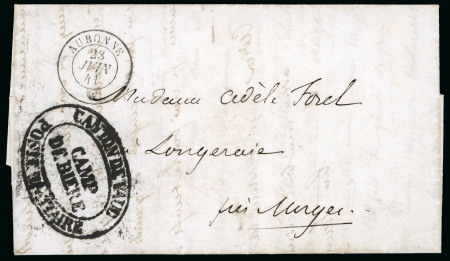 AUBONNE
23
JUIN
41
Madame Adèle Forel
à Longeraie
près Morges.
CANTON DE VAUD
POSTE MILITAIRE
CAMP
DE BIERE